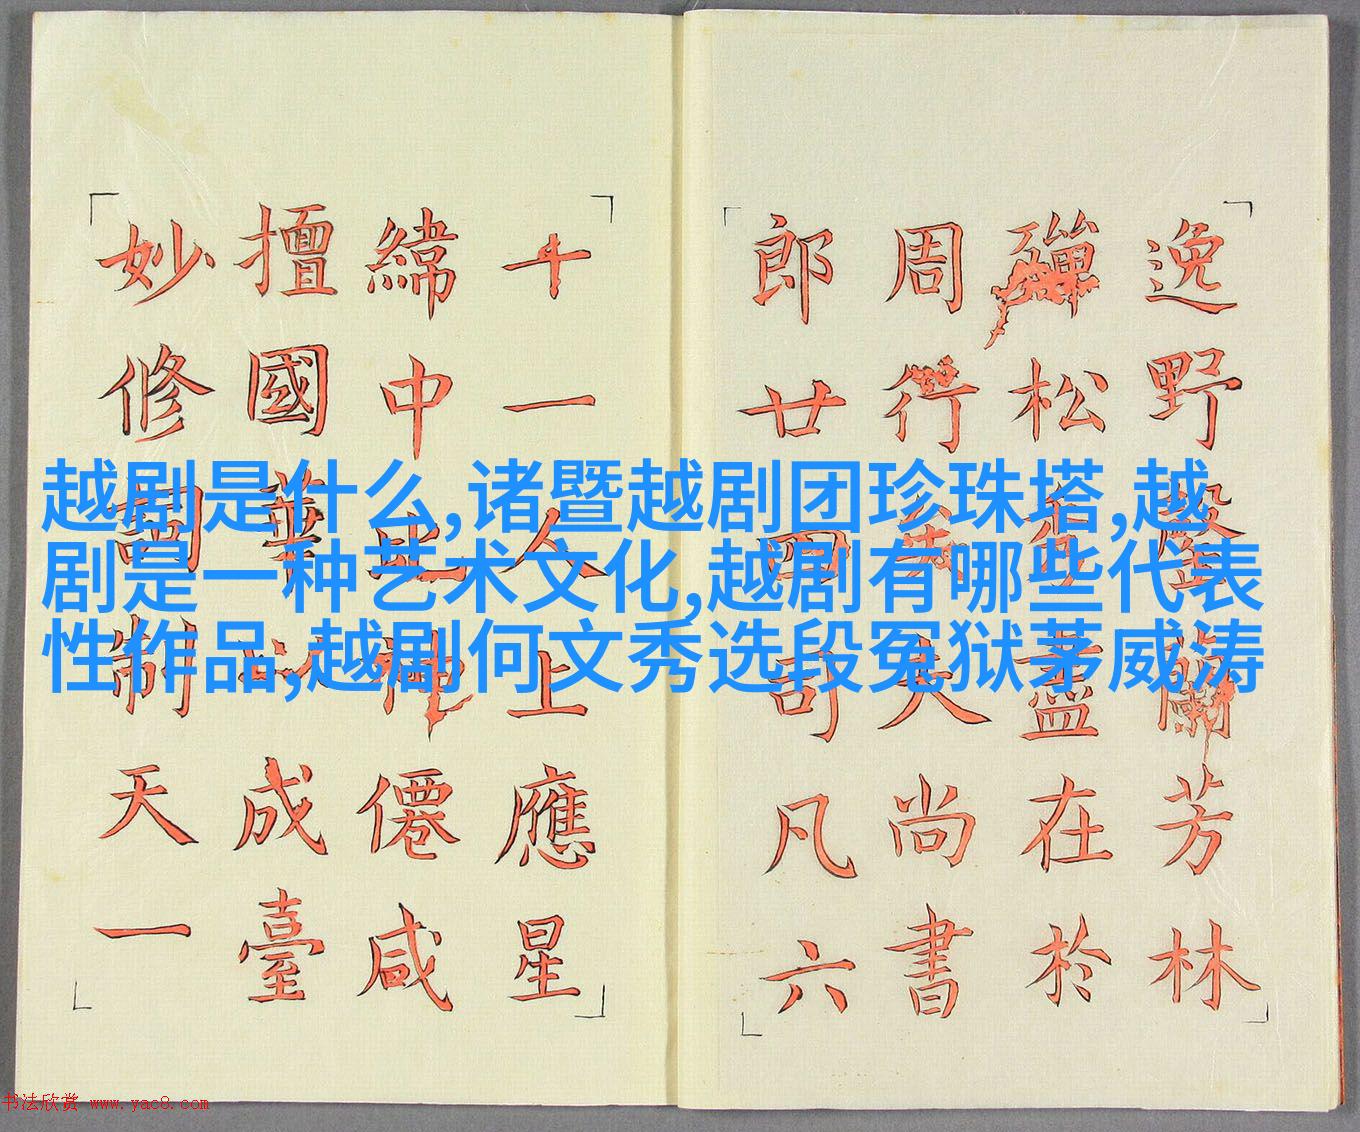 越剧是什么,诸暨越剧团珍珠塔,越
剧是一种艺术文化,越剧有哪些代表
性作品,越剧何文秀选段冤狱茅威涛
逸野芳林
松盖在於
周行大尚書
郎廿四司凡六
十一人上應星
緯中僊咸
擅國華以成臺
妙修制天一
书法欣赏 www.yac8.com